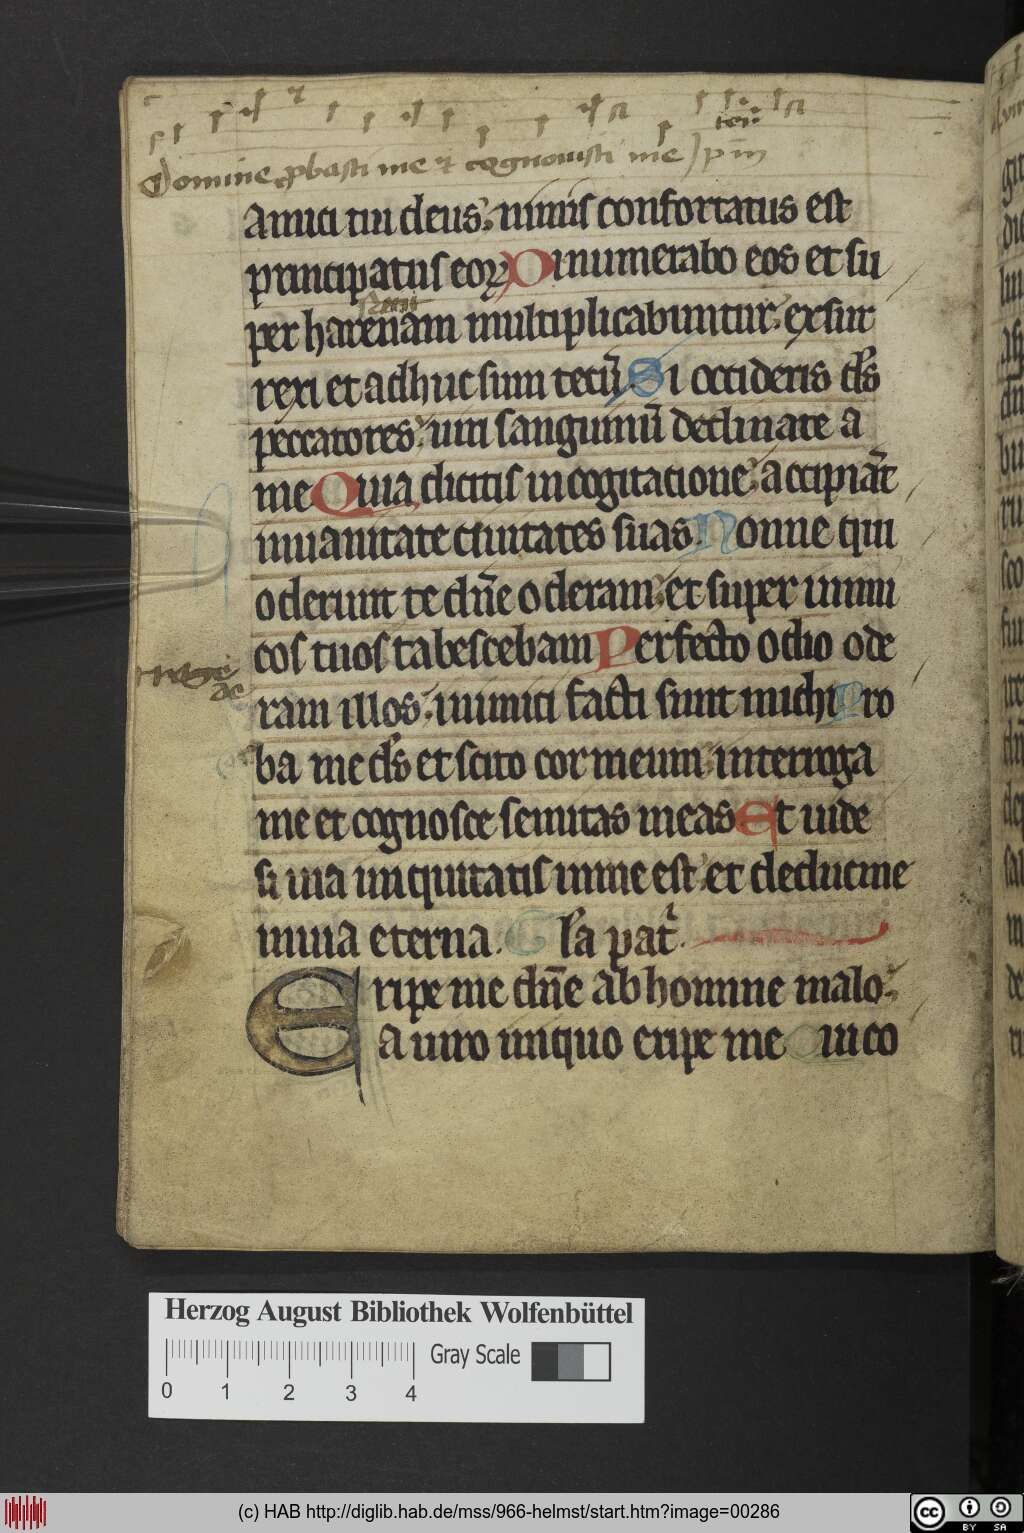 Domine ꝓbasti me et cognouisti me p̄m
amici tui deus. nimis confortatus est
principatus eoꝝ Dinumerabo eos et su
per harenam multiplicabuntur. exsur
rexi et adhuc sum tecū. Si occideris ds̄
peccatores. uiri sanguinū declinate a
me Quia dicitis in cogitacione. accipiāt
inuanitate ciuitates suas. Nonne qui
oderunt te dn̄e oderam. et super inimi
cos tuos tabescebam Perfecto odio ode
ram illos. inimici facti sunt michi Pro
ba me ds̄ et scito cor meum. interroga
me et cognosce semitas meas Et uide
si uia iniquitatis inme est. et deduc me
inuia eterna. Gl̄a pat̄.
Eripe me dn̄e ab homine malo.
a uiro iniquo eripe me Qui co
Herzog August Bibliothek Wolfenbüttel
Gray Scale
0 1 2 3 4
(c) HAB http://diglib.hab.de/mss/966-helmst/start.htm?image=00286
cc BY SA